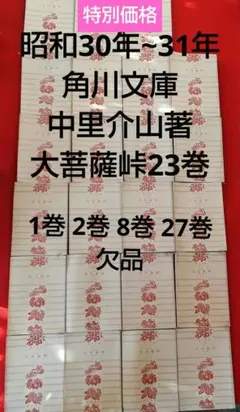 特別価格
昭和30年~31年
角川文庫
中里介山著
大菩薩峠23巻
1巻 2巻 8巻 27巻
欠品